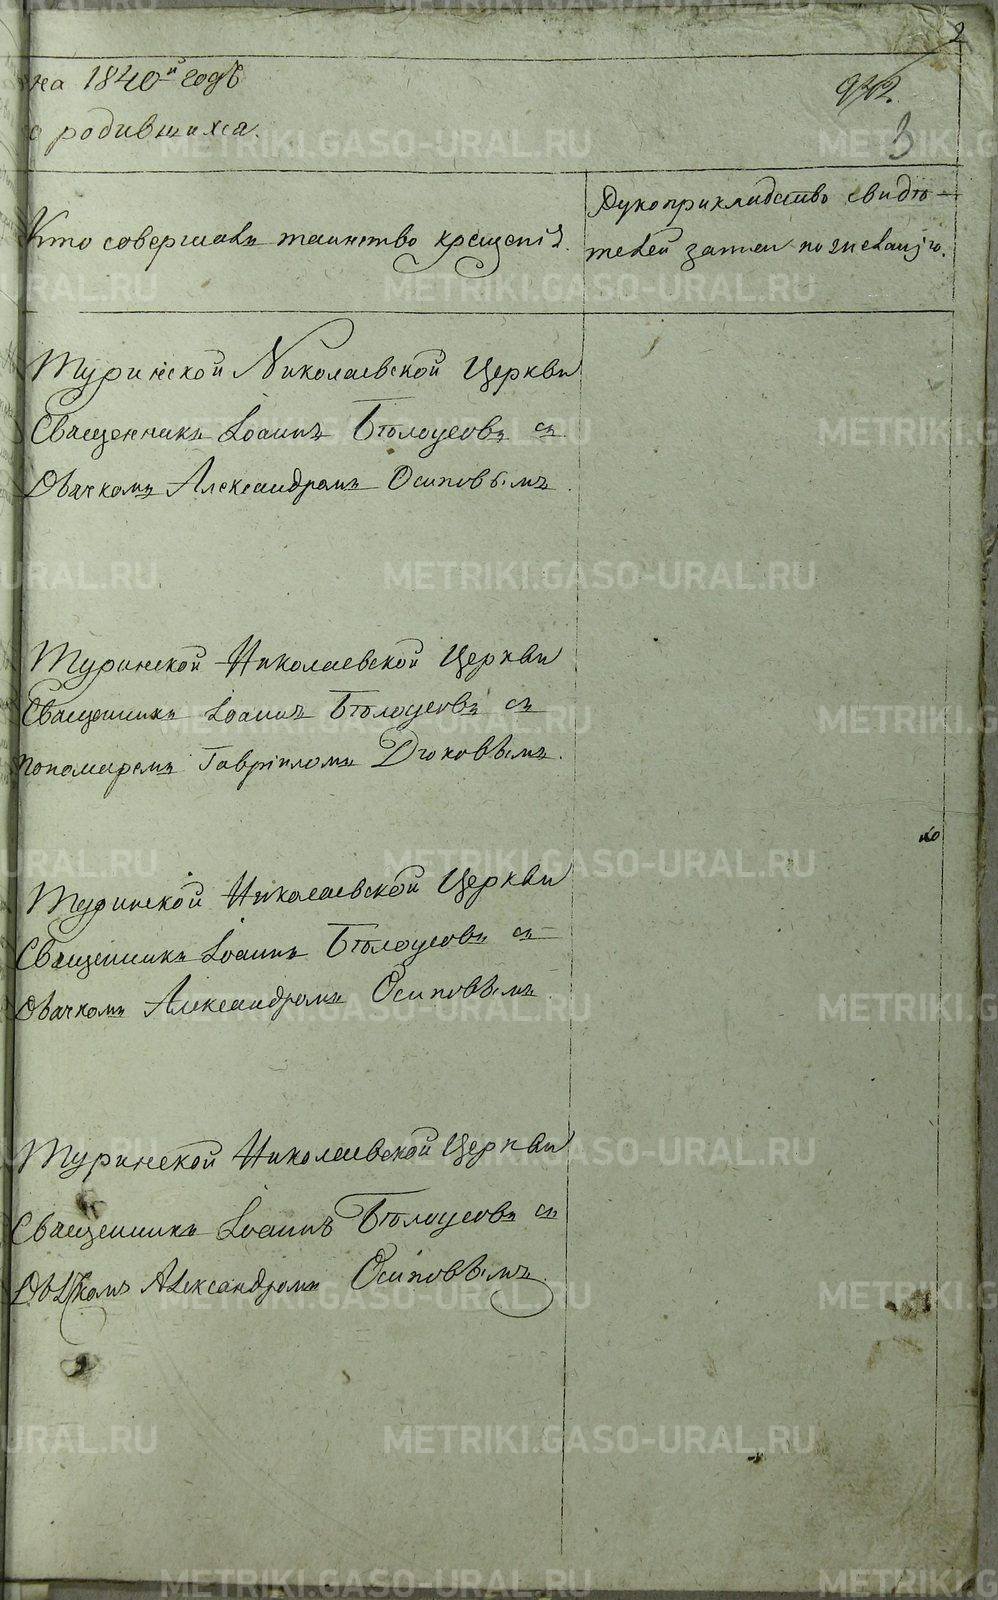 2
на 1840й годъ
942.
о родившихся.
3
Кто совершалъ таинство крещенія.
Рукоприкладство свидѣ-
телей записи по желанію.
Туринской Николаевской Церкви
Священникъ Іоаннъ Бѣлоусовъ съ
Дьячкомъ Александромъ Осиповымъ.
Туринской Николаевской Церкви
Священникъ Іоаннъ Бѣлоусовъ съ
пономаремъ Гавріиломъ Дюковымъ.
Туринской Николаевской Церкви
Священникъ Іоаннъ Бѣлоусовъ съ
Дьячкомъ Александромъ Осиповымъ.
Туринской Николаевской Церкви
Священникъ Іоаннъ Бѣлоусовъ съ
Александромъ Осиповымъ.
METRIKI.GASO-URAL.RU